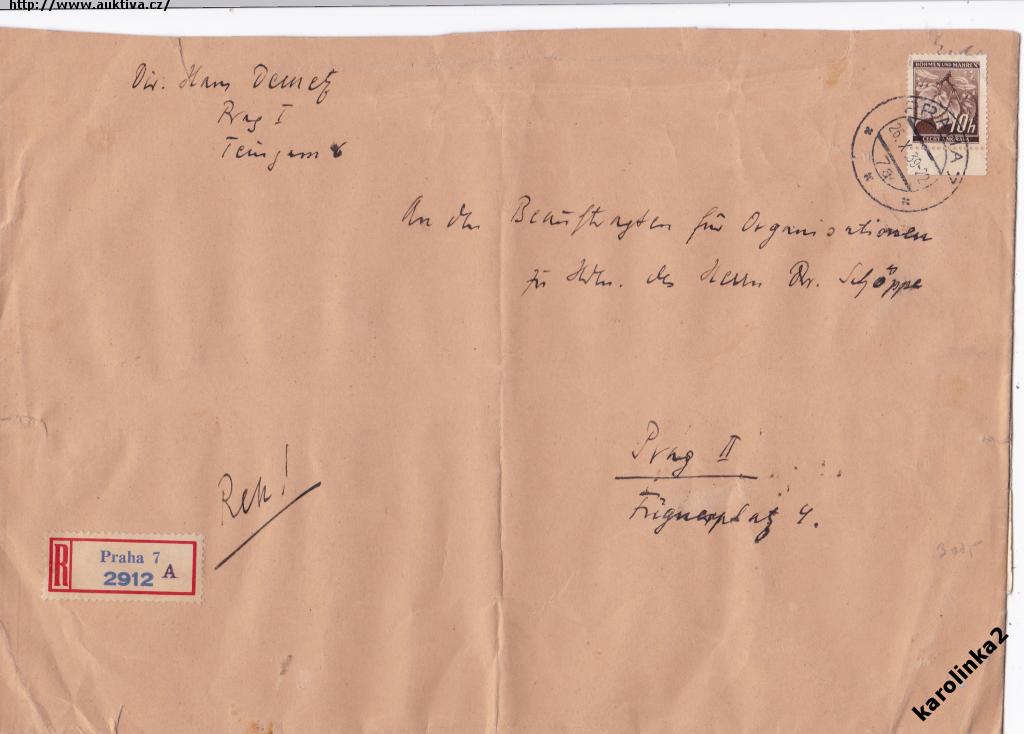 http://www.auktiva.cz/
Dir. Hans Demetz
Prag I
Teingasse 8
BÖHMEN UND MÄHREN
10h
ČECHY A MORAVA
PRAHA 7
26.X.39-12
7a
An den Beauftragten für Organisationen
zu Hdn. des Herrn Dr. Schöppe
Prag II
Fügnerplatz 4.
Rek!
R Praha 7
2912 A
karolinka2